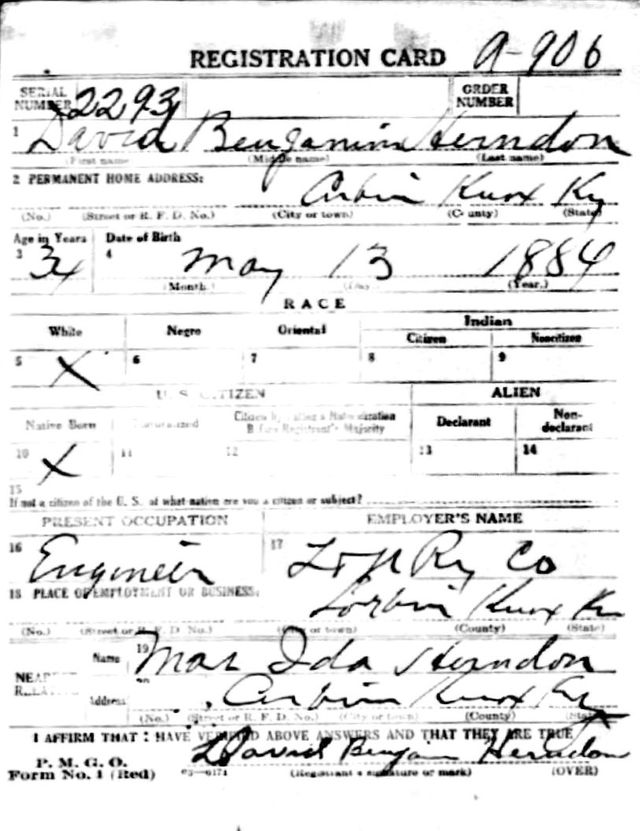 REGISTRATION CARD A-906
SERIAL NUMBER 2293 ORDER NUMBER
1 David Benjamin Herndon
(First name) (Middle name) (Last name)
2 PERMANENT HOME ADDRESS:
Corbin Knox Ky
(No.) (Street or R. F. D. No.) (City or town) (County) (State)
Age in Years Date of Birth
3 34 4 May 13 1884
(Month.) (Day.) (Year.)
RACE
White Negro Oriental Indian
Citizen Noncitizen
5 X 6 7 8 9
U. S. CITIZEN ALIEN
Native Born Naturalized Citizen by Father's Naturalization Before Registrant's Majority Declarant Non-declarant
10 X 11 12 13 14
15
If not a citizen of the U. S. of what nation are you a citizen or subject?
PRESENT OCCUPATION EMPLOYER'S NAME
16 Engineer 17 L & N Ry Co
18 PLACE OF EMPLOYMENT OR BUSINESS:
Corbin Knox Ky
(No.) (Street or R. F. D. No.) (City or town) (County) (State)
NEAREST RELATIVE
Name 19 Mrs Ida Herndon
Address 20 Corbin Knox Ky
(No.) (Street or R. F. D. No.) (City or town) (County) (State)
I AFFIRM THAT I HAVE VERIFIED ABOVE ANSWERS AND THAT THEY ARE TRUE
P. M. G. O.
Form No. 1 (Red) 03-6171 David Benjamin Herndon
(Registrant's signature or mark) (OVER)